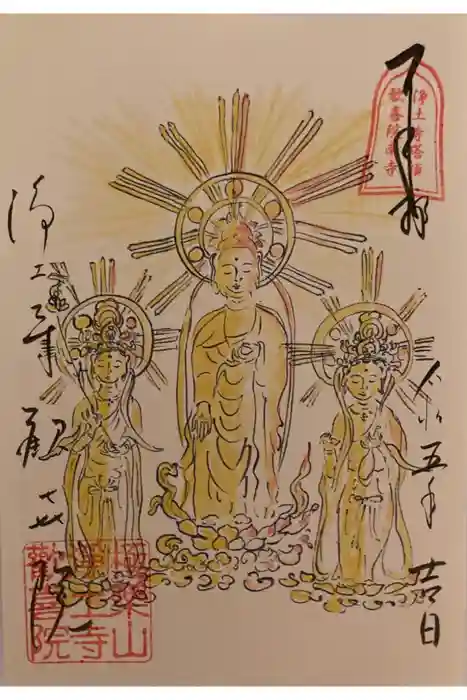 奉拝
浄土寺塔頭
令和五年 吉日
浄土寺 歓㐂院
極楽山
浄土寺
歓喜院